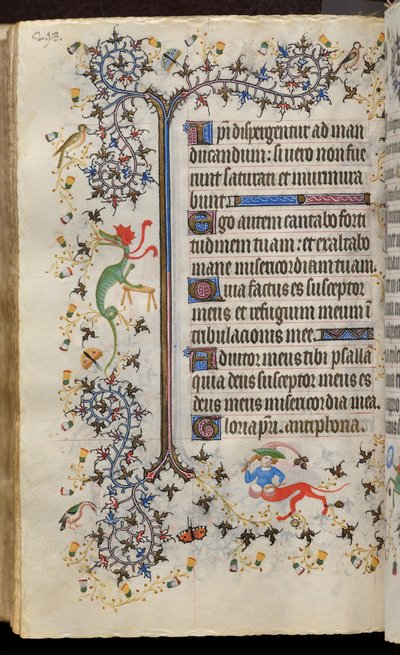 293.
Ipi dispergentur ad man
ducandum: si uero non fue
rint saturati et murmura
bunt.
Ego autem cantabo forti
tudinem tuam: et exaltabo
mane misericordiam tuam.
Quia factus es susceptor
meus et refugium meum ī
tribulacionis mee.
Adiutor meus tibi psallā
quia deus susceptor meus es
deus meus misericordia mea.
Gloria pri. antiphona.